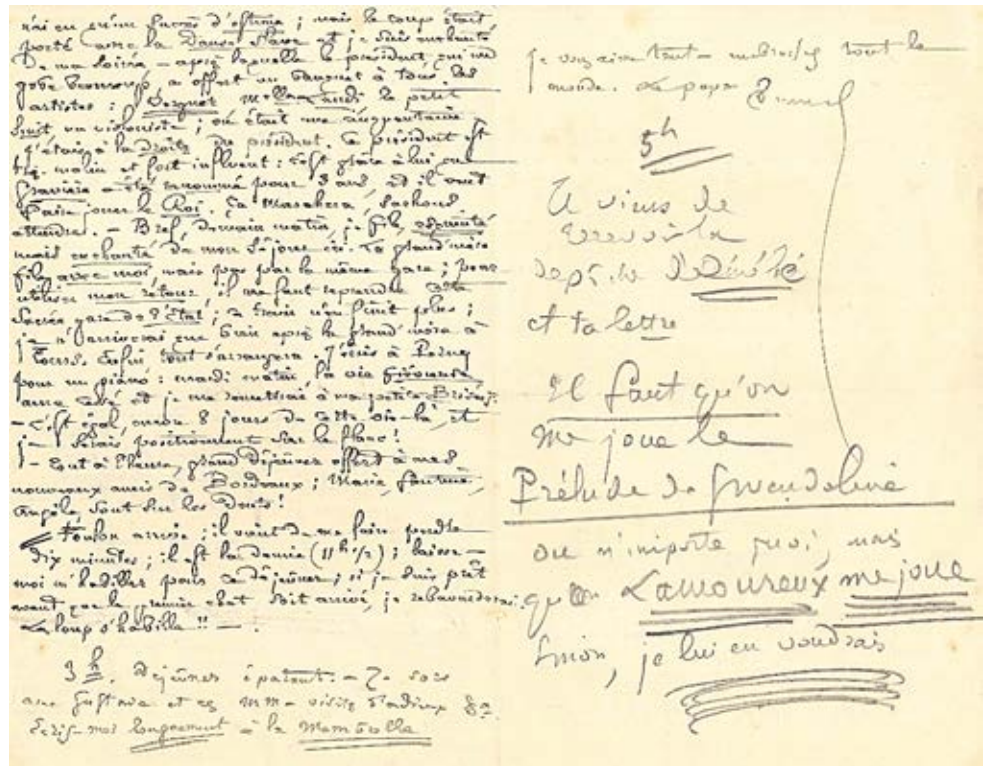 n'ai eu qu'un succès d'estime ; mais le coup était
porté avec la Danse Slave et je suis enchanté
de ma soirée – après laquelle le président, qui me
gobe beaucoup a offert un banquet à tous les
artistes : et le petit
un violoniste ; on était une cinquantaine
j'étais à la droite du président. Ce président est
très malin et fort influent : c'est grâce à lui que
Gravière a été renommé pour 3 ans, et il veut
faire jouer le Roi. Ça marchera, sachons
attendre. – Bref, demain matin, je file, éreinté
mais enchanté de mon séjour ici. Ta grand'mère
file avec moi, mais pas par la même gare ; pour
utiliser mon retour, il me faut reprendre cette
sacrée gare de l'Etat ;
je n'arriverai que après la grand'mère à
Tours. Enfin tout s'arrangera. J'écris à
pour un piano : mardi matin la vie
et je me remettrai à ma petite Briséis.
– c'est égal, encore 8 jours de cette vie-là, et
je serais positivement sur le flanc !
– Tout à l'heure, grand déjeuner offert à mes
nouveaux amis de Bordeaux ; Marie,
Angèle sont sur les dents !
Toulon arrive ; il vient de me faire perdre
dix minutes ; il est la demie (11h 1/2) ; laisse-
moi m'habiller pour ce déjeuner ; si je suis prêt
avant que le premier chat soit arrivé, je rebavarderai.
Le loup s'habille !! – .
3h. Déjeuner épatant. – Je sors
avec Gustave et ces MM – visites d'adieux &a
Ecris-moi longuement à la Membrolle
Je vous aime tout – embrassez tout le
monde. Le papa Emmel
5h
Je viens de
recevoir la
dépêche de Dédé
et ta lettre
Il faut qu'on
me joue le
Prélude de Gwendoline
ou n'importe quoi, mais
que Lamoureux me joue
sinon, je lui en voudrais